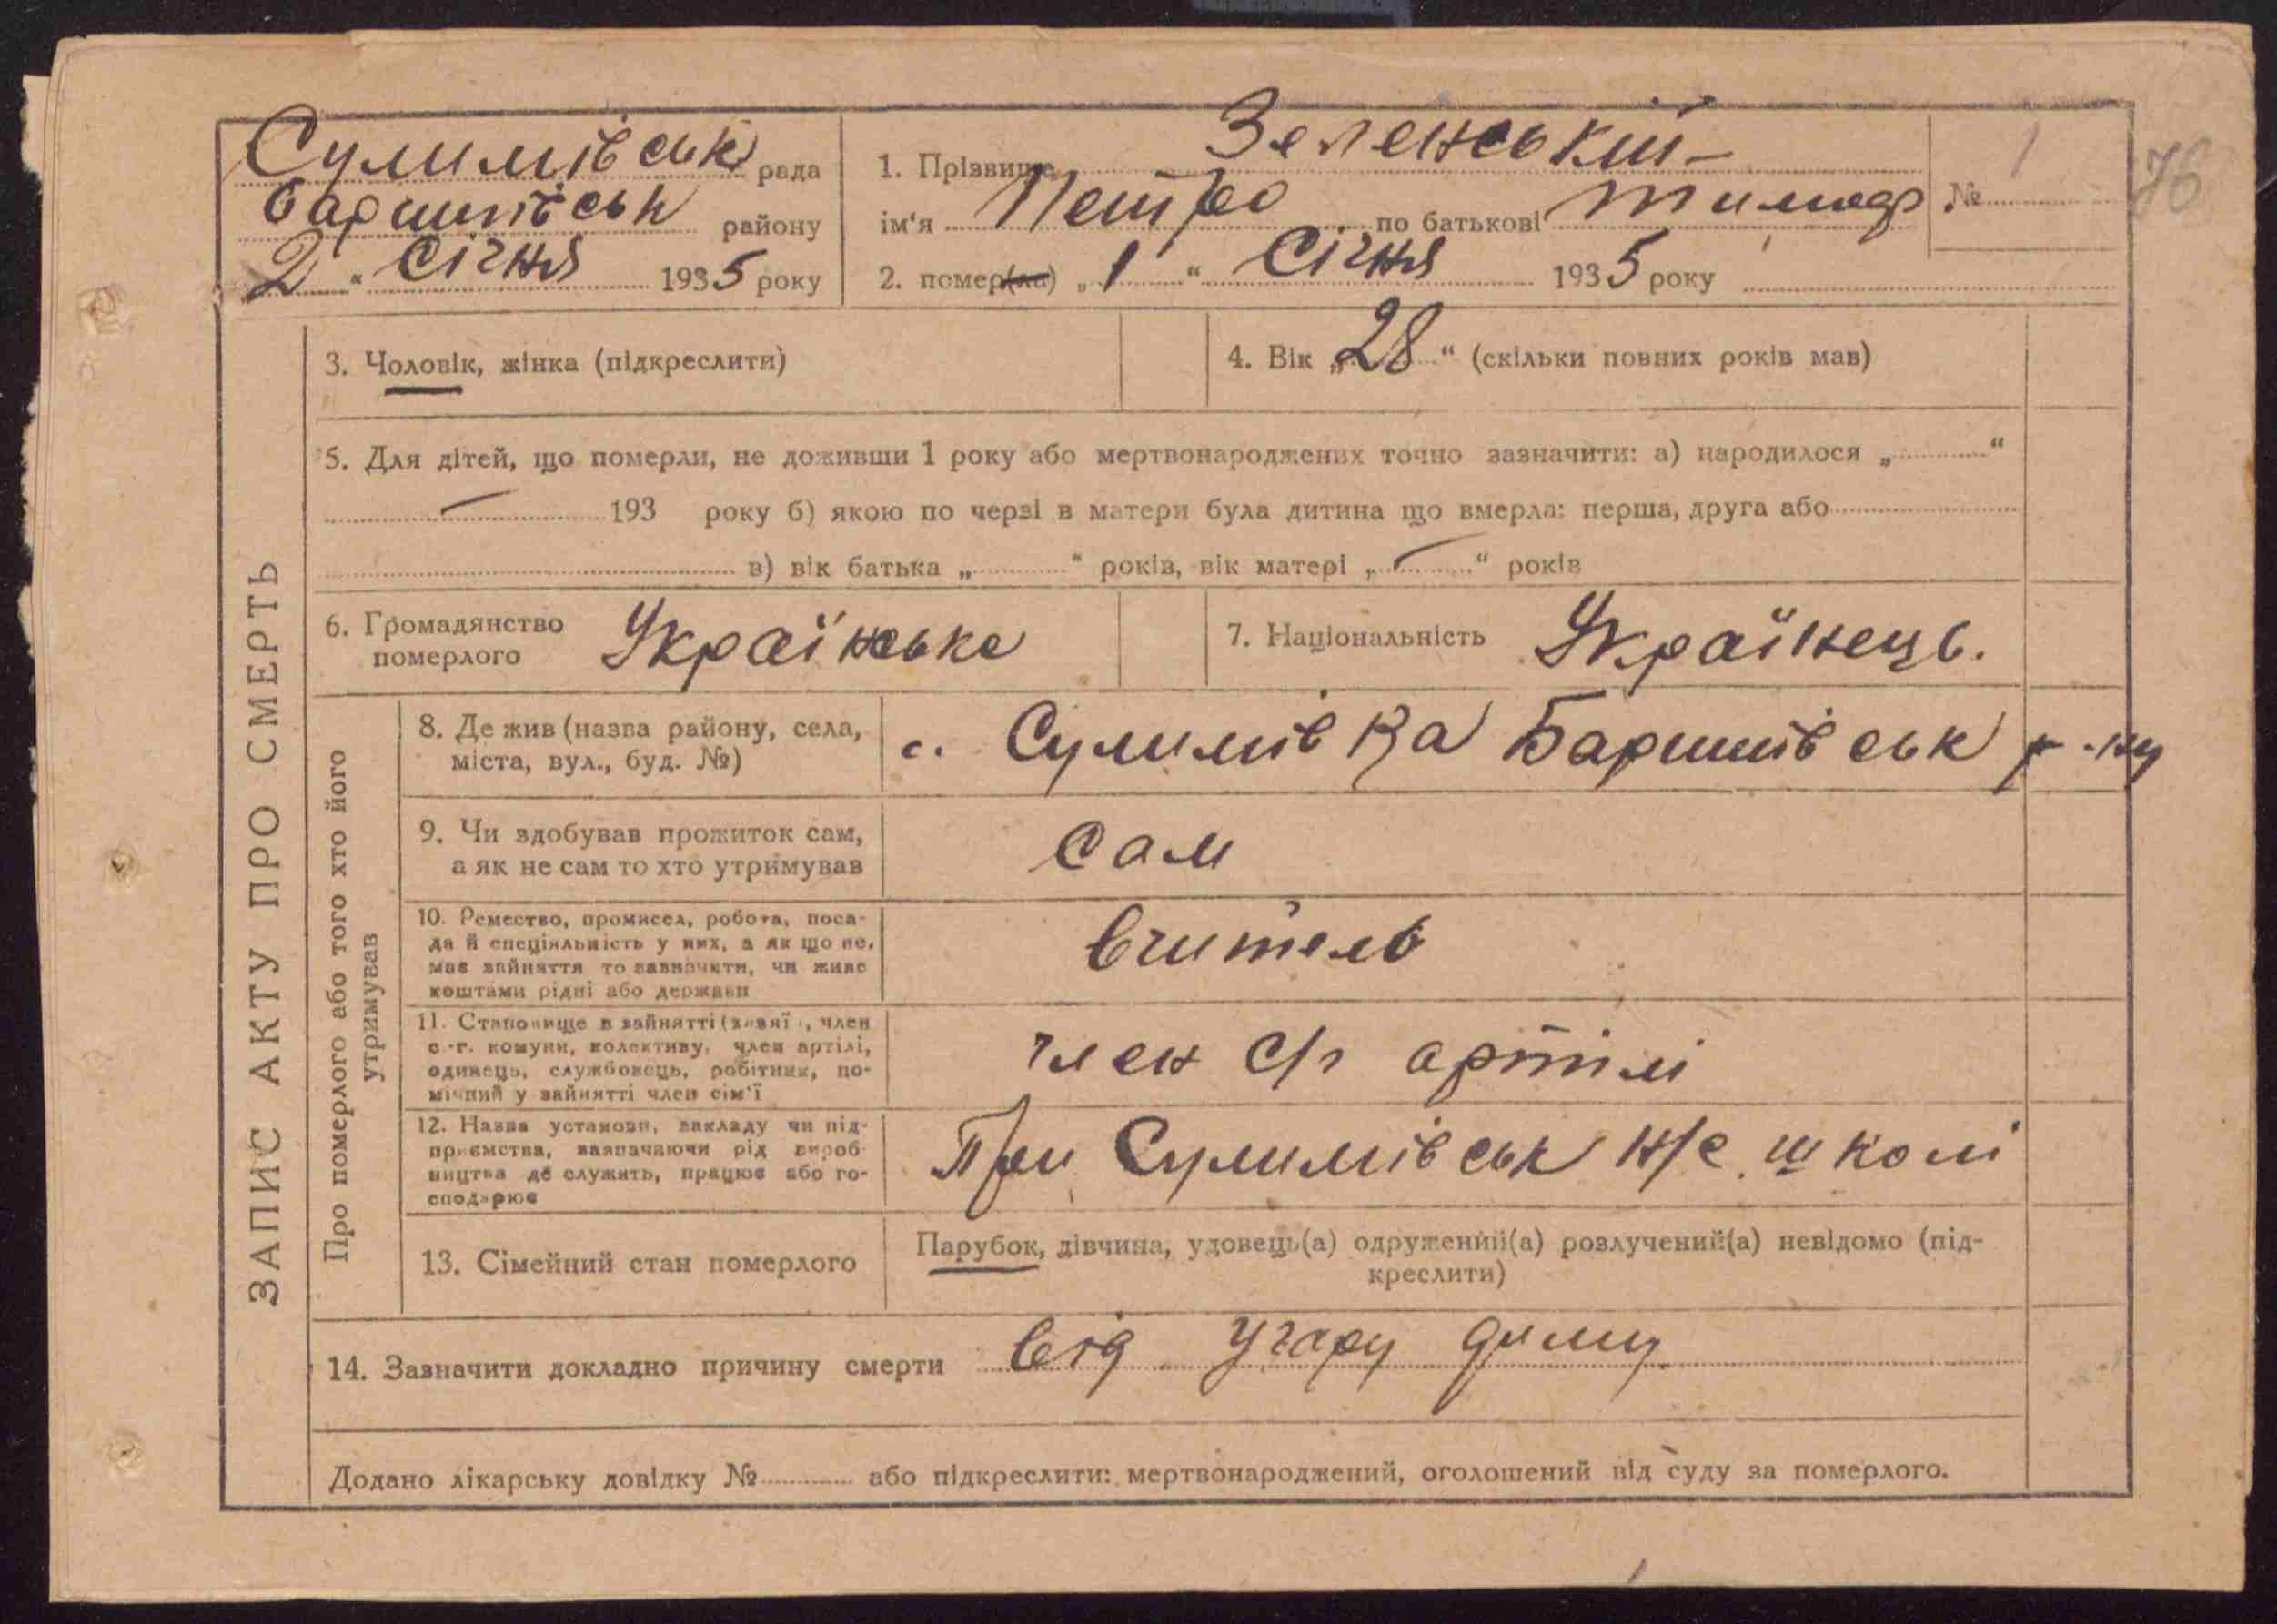 Сулимівськ рада
Баришівськ району
2 " Січня 1935 року
1. Прізвище Зеленський
ім'я Петро по батькові Тимоф
2. помер(ла) „ 1 " Січня 1935 року
№ 1
76
ЗАПИС АКТУ ПРО СМЕРТЬ
3. Чоловік, жінка (підкреслити)
4. Вік „ 28 " (скільки повних років мав)
5. Для дітей, що померли, не доживши 1 року або мертвонароджених точно зазначити: а) народилося „ "
193 року б) якою по черзі в матери була дитина що вмерла: перша, друга або
в) вік батька „ " років, вік матері „ " років
6. Громадянство
померлого
Українське
7. Національність Українець.
Про померлого або того хто його
утримував
8. Де жив (назва району, села,
міста, вул., буд. №)
с. Сулимівка Баришівськ р-ну
9. Чи здобував прожиток сам,
а як не сам то хто утримував
сам
10. Ремество, промисел, робота, поса-
да й спеціяльність у них, а як що не.
має зайняття то зазначити, чи живе
коштами рідні або держави
вчитель
11. Становище в зайнятті (хазяї , член
с.-г. комуни, колективу, член артілі,
одинець, службовець, робітник, по-
мічний у зайнятті член сім'ї
член С/г артілі
12. Назва установи, закладу чи під-
приємства, зазначаючи рід вироб-
ництва де служить, працює або го-
сподарює
При Сулимівськ н/с. школі
13. Сімейний стан померлого
Парубок, дівчина, удовець(а) одружений(а) розлучений(а) невідомо (під-
креслити)
14. Зазначити докладно причину смерти від угару диму.
Додано лікарську довідку № або підкреслити: мертвонароджений, оголошений від суду за померлого.